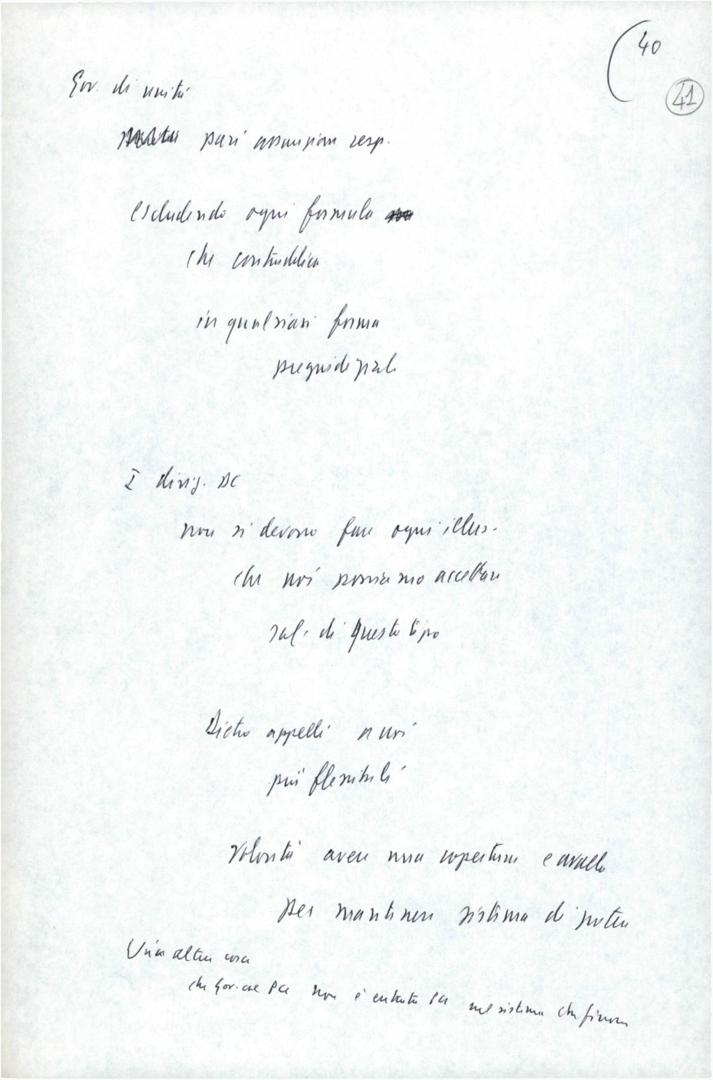 40
41
Gov. di unità
pari assunzion resp.
escludendo ogni formula
che contraddica
in qualsiasi forma
pregiudizial
I dirig. DC
non si devono fare ogni illus.
che noi possiamo accettare
sol. di questo tipo
Dietro appelli a noi
più flessibili
volontà avere una copertura e avallo
per mantenere sistema di potere
Una altra cosa
che Gov. PCI non è entrato PCI nel sistema che finora